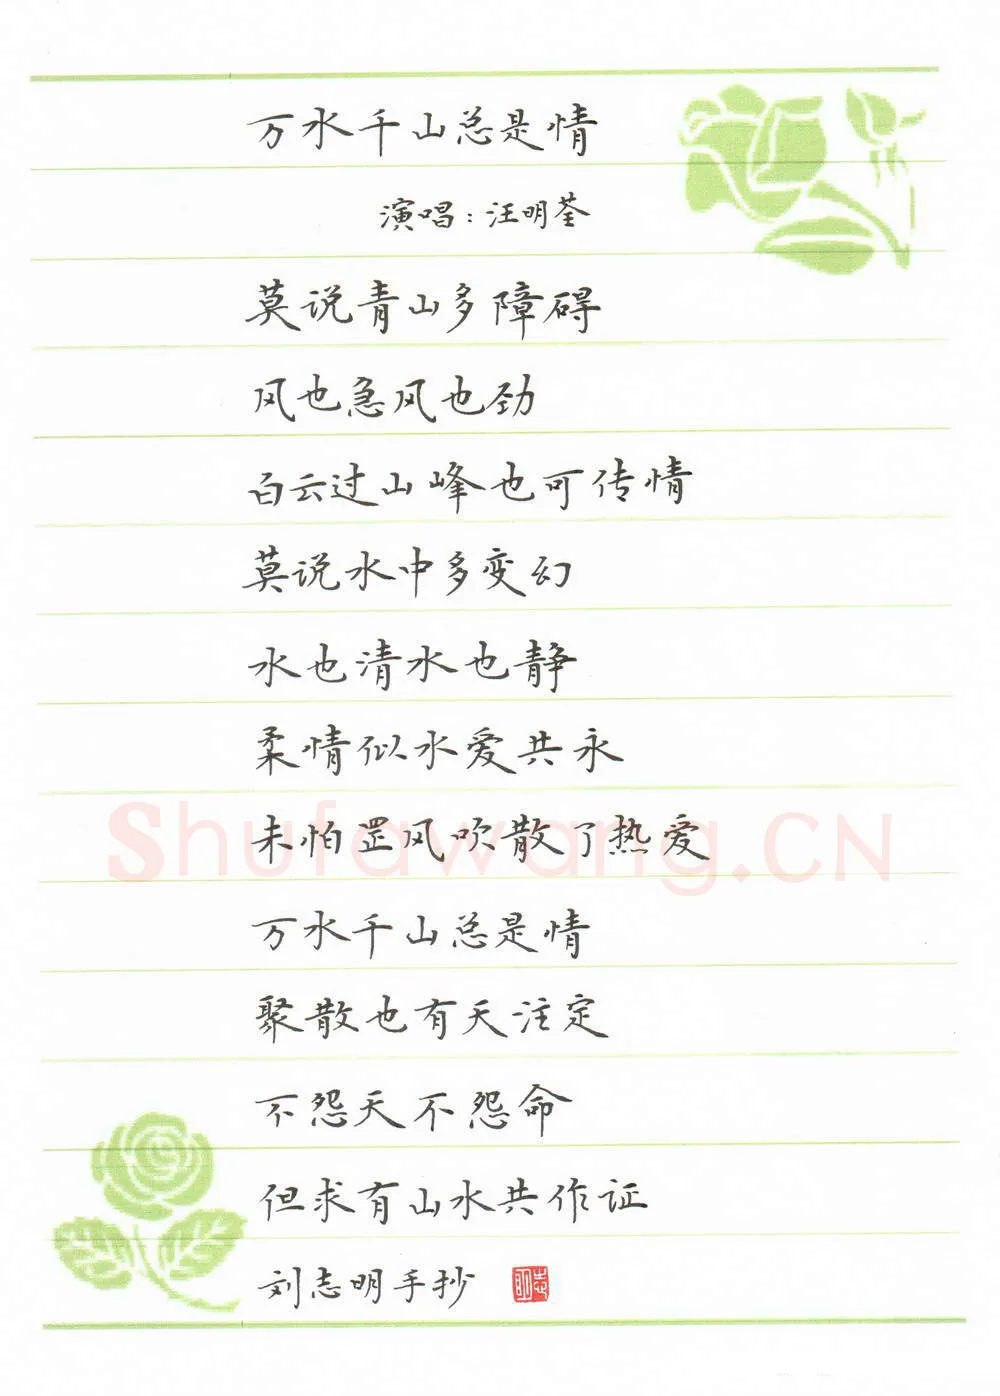 万水千山总是情
演唱：汪明荃
莫说青山多障碍
风也急风也劲
白云过山峰也可传情
莫说水中多变幻
水也清水也静
柔情似水爱共永
未怕罡风吹散了热爱
万水千山总是情
聚散也有天注定
不怨天不怨命
但求有山水共作证
刘志明手抄
志明
Shufawang.CN